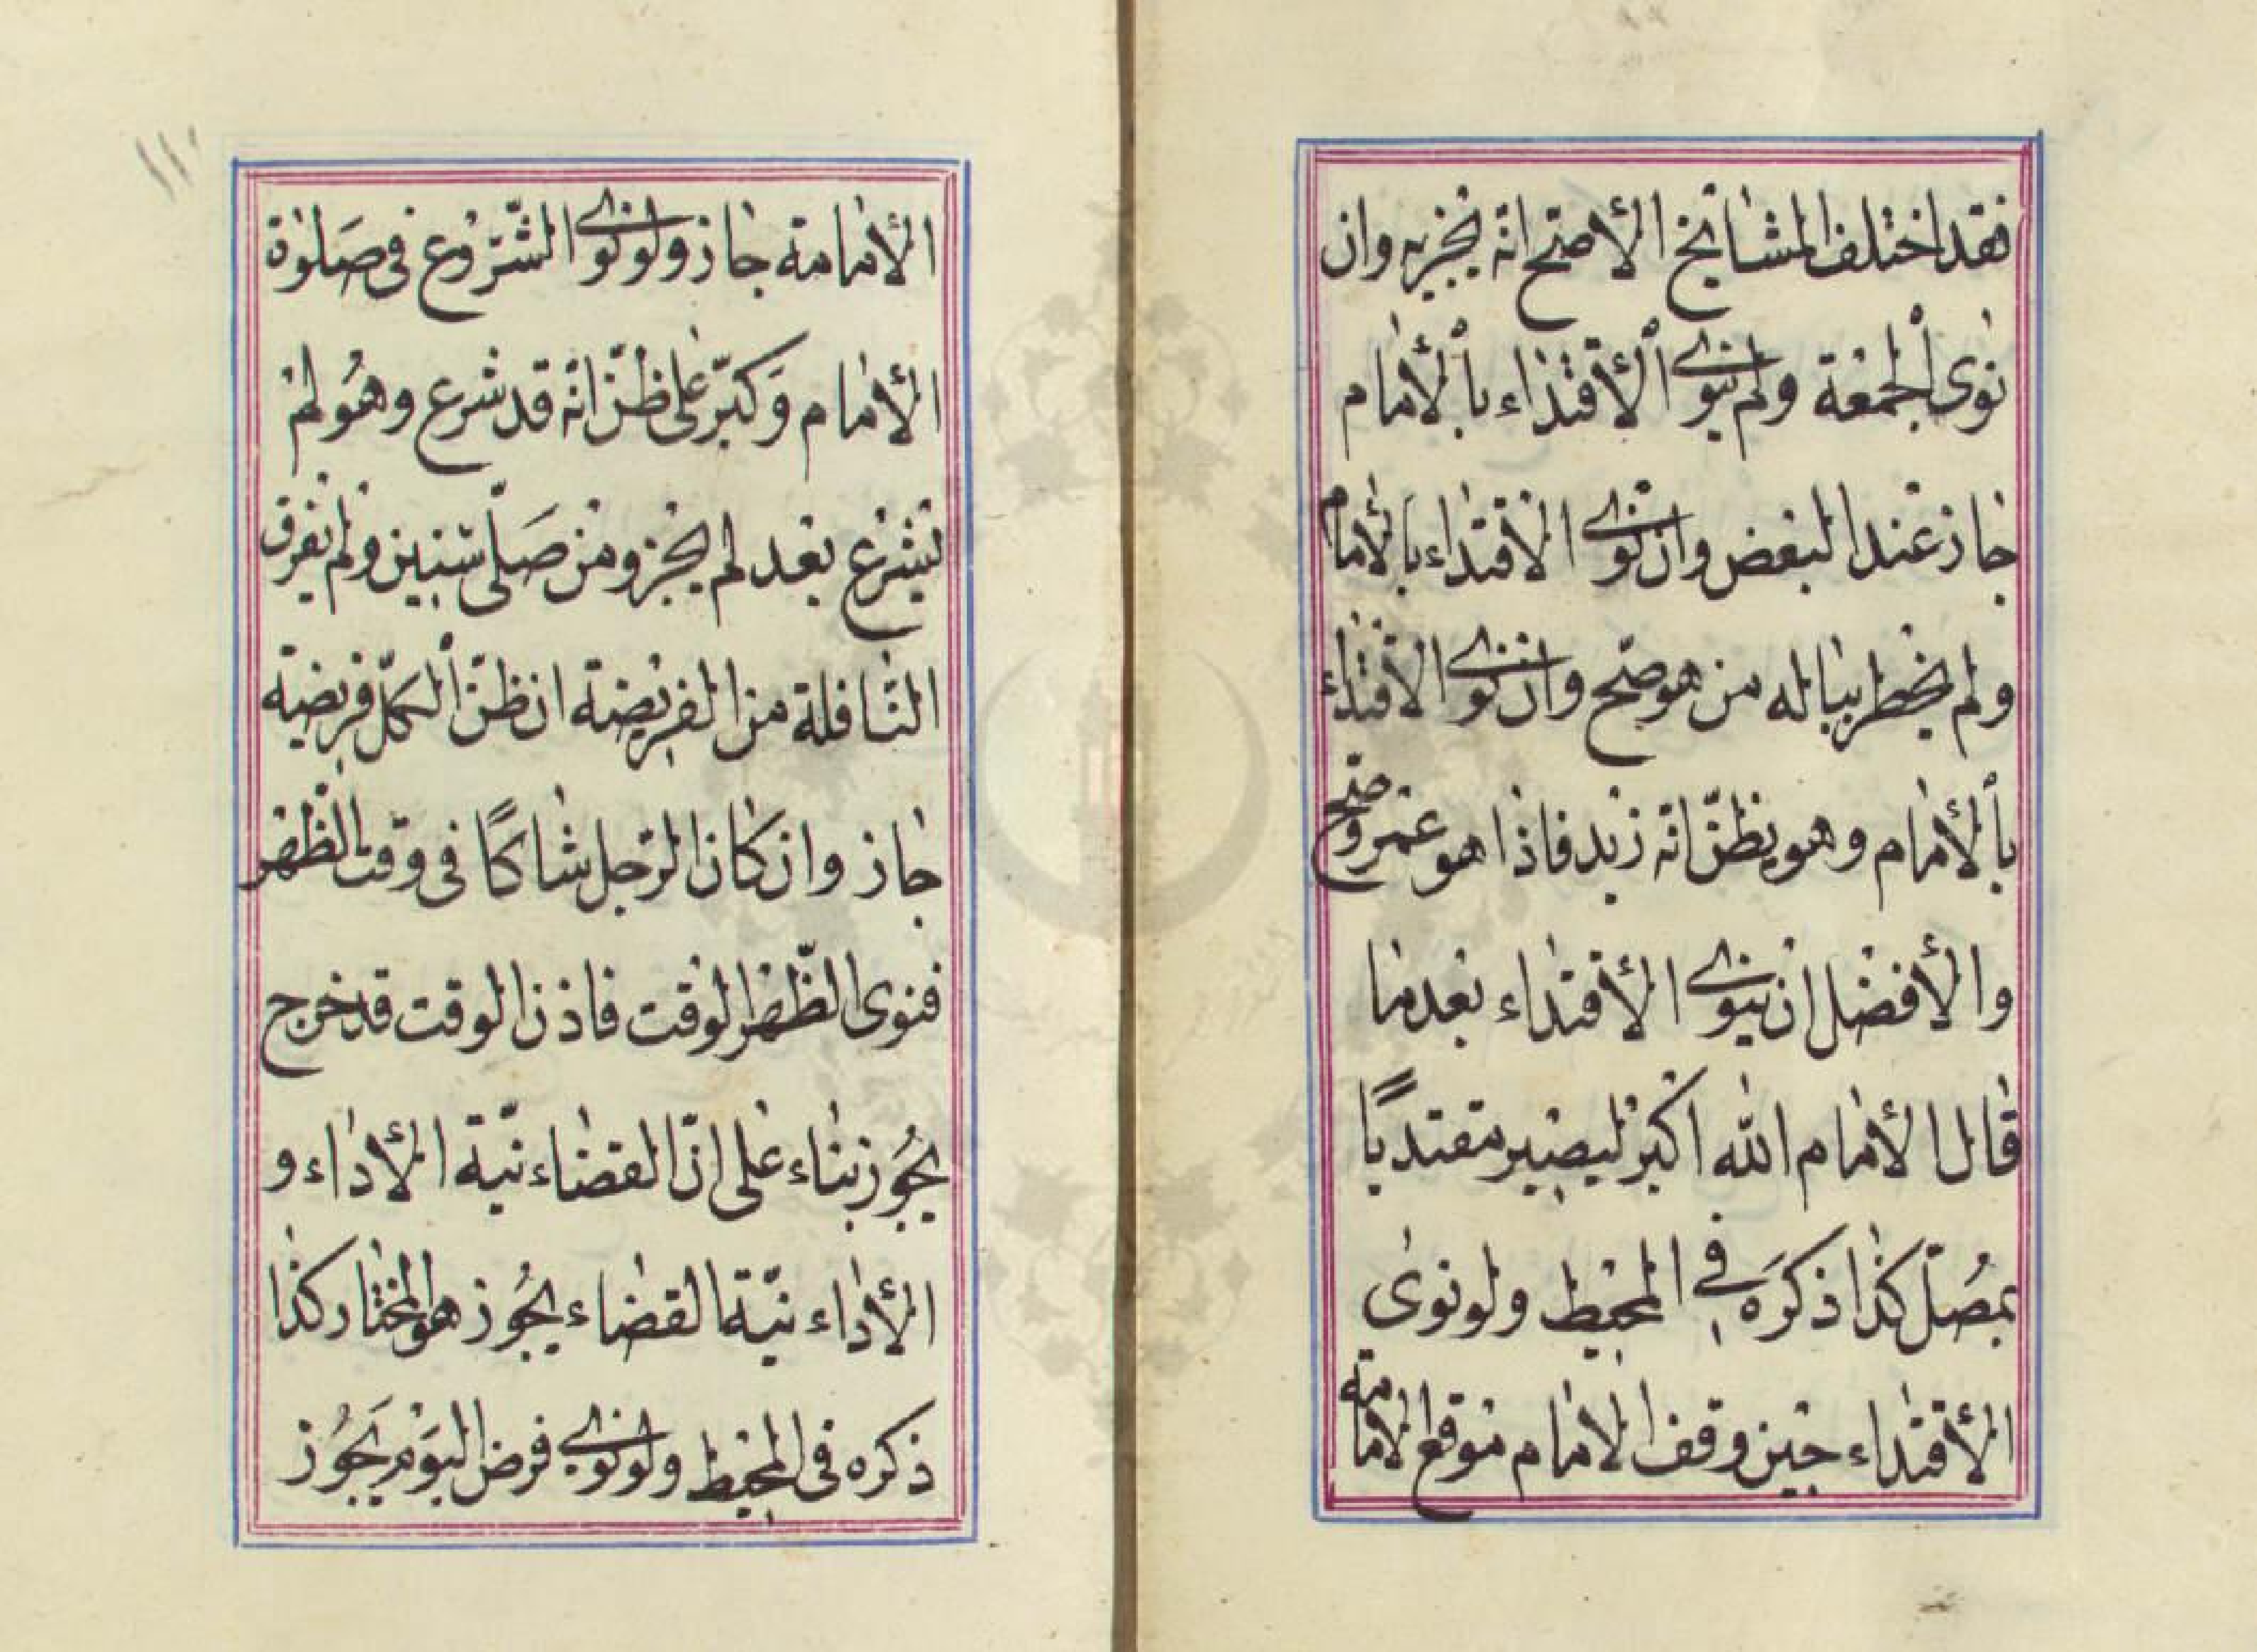 فقد اختلف المشايخ الأصح انه يجزيه وان
نوى الجمعة ولم ينوى الأقتداء بالأمام
جاز عند البعض وان نوى الاقتداء بالأمام
ولم يخطر بباله من هو صح وان نوى الاقتداء
بالأمام وهو يظن انه زيد فاذا هو عمرو صح
والأفضل ان ينوى الأقتداء بعد ما
قال الأمام الله اكبر ليصير مقتديًا
بمصل كذا ذكره في المحيط ولو نوى
الأقتداء حين وقف الامام موقع الامامة
الأمامة جاز ولو نوى الشروع فى صلوة
الأمام وكبر على ظن انه قد شرع وهو لم
يشرع بعد لم يجز ومن صلى سنين ولم يعرف
النافلة من الفريضة ان ظن الكل فريضة
جاز وان كان الرجل شاكًا فى وقت الظهر
فنوى الظهر الوقت فاذن الوقت قد خرج
يجوز بناء على ان القضاء نية الأداء و
الأداء نية القضاء يجوز هو المختار كذا
ذكره فى المحيط ولو نوى فرض اليوم يجوز